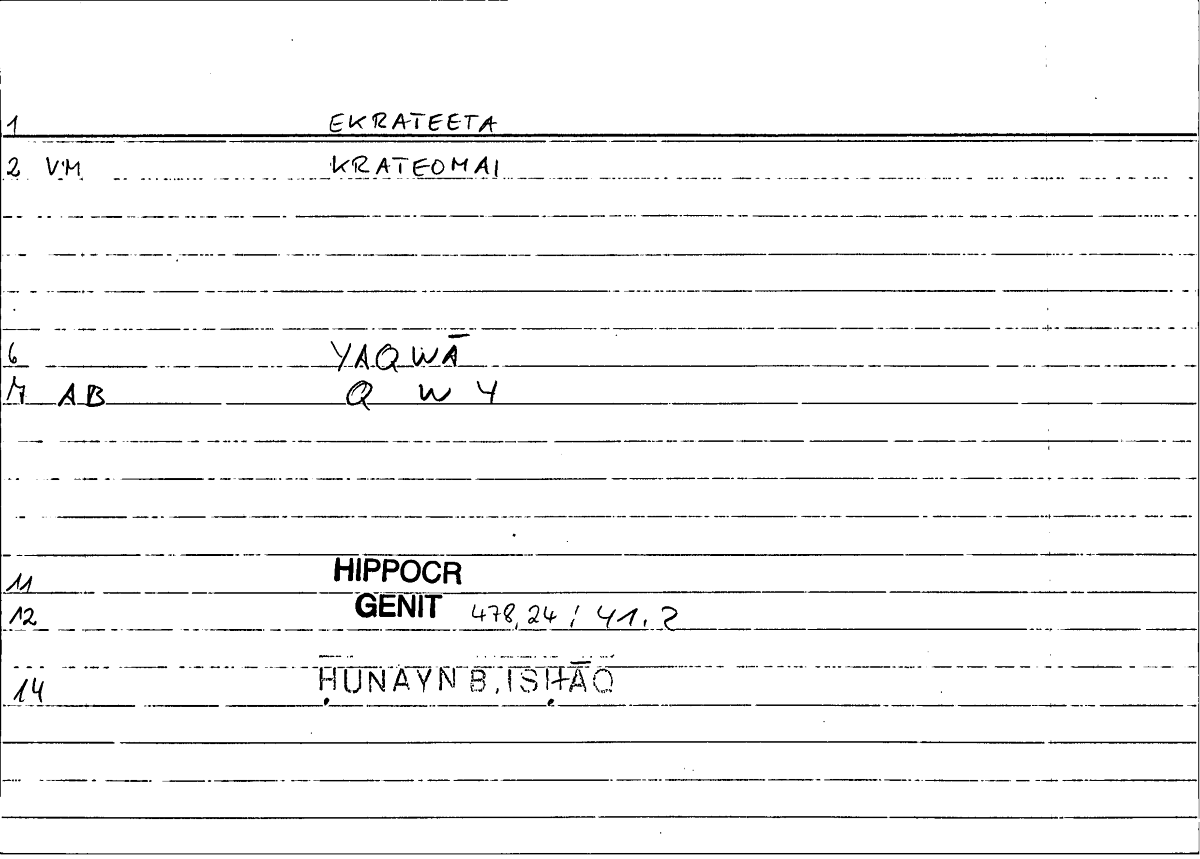 1 EKRATEETA
2 VM KRATEOMAI
6 YAQWĀ
7 AB Q W Y
11 HIPPOCR
12 GENIT 478,24 ; 41.2
14 ḤUNAYN B.ISḤĀQ